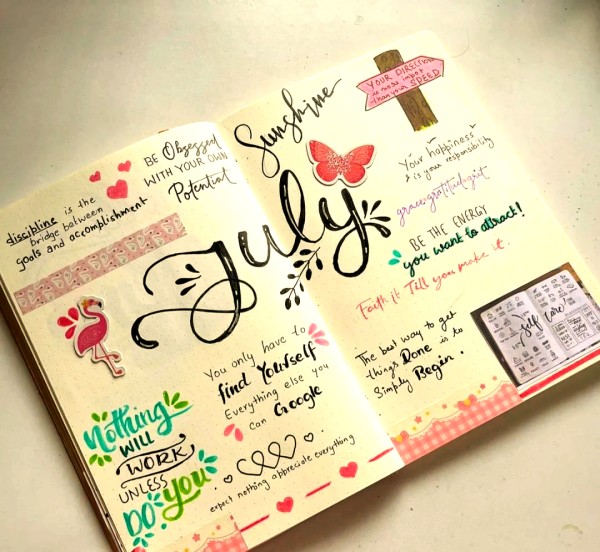 discipline is the
bridge between
goals and accomplishment
BE Obsessed
WITH YOUR OWN
Potential
July
You only have to
find Yourself
Everything else you
can Google
Nothing
WILL
WORK
UNLESS
DO YOU
expect nothing appreciate everything
Sunshine
YOUR DIRECTION
is more impor
than your SPEED
Your happiness
is your responsibility
grace+gratitude+grit
BE THE ENERGY
you want to attract!
Faith it Till you make it.
The best way to get
things Done is to
Simply Begin.
Self Care!